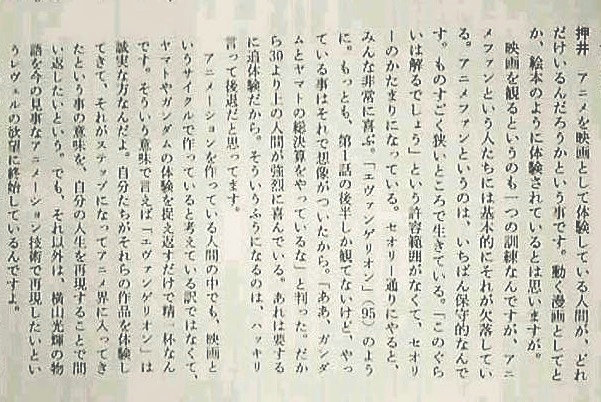 押井　アニメを映画として体験している人間が、どれ
だけいるんだろうかという事です。動く漫画としてと
か、絵本のように体験されているとは思いますが。
　映画を観るというのも一つの訓練なんですが、アニ
メファンという人たちには基本的にそれが欠落してい
る。アニメファンというのは、いちばん保守的なんで
す。ものすごく狭いところで生きている。「このぐら
いは解るでしょう」という許容範囲がなくて、セオリ
ーのかたまりになっている。セオリー通りにやると、
みんな非常に喜ぶ。「エヴァンゲリオン」（95）のよう
に。もっとも、第1話の後半しか観てないけど、やっ
ている事はそれで想像がついたから。「ああ、ガンダ
ムとヤマトの総決算をやっているな」と判った。だか
ら30より上の人間が強烈に喜んでいる。あれは要する
に追体験だから。そういうふうになるのは、ハッキリ
言って後退だと思ってます。
　アニメーションを作っている人間の中でも、映画と
いうサイクルで作っていると考えている訳ではなくて、
ヤマトやガンダムの体験を捉え返すだけで精一杯なん
です。そういう意味で言えば「エヴァンゲリオン」は
誠実な方なんだよ。自分たちがそれらの作品を体験し
てきて、それがステップになってアニメ界に入ってき
たという事の意味を、自分の人生を再現することで問
い返したいという。でも、それ以外は、横山光輝の物
語を今の見事なアニメーション技術で再現したいとい
うレヴェルの欲望に終始しているんですよ。